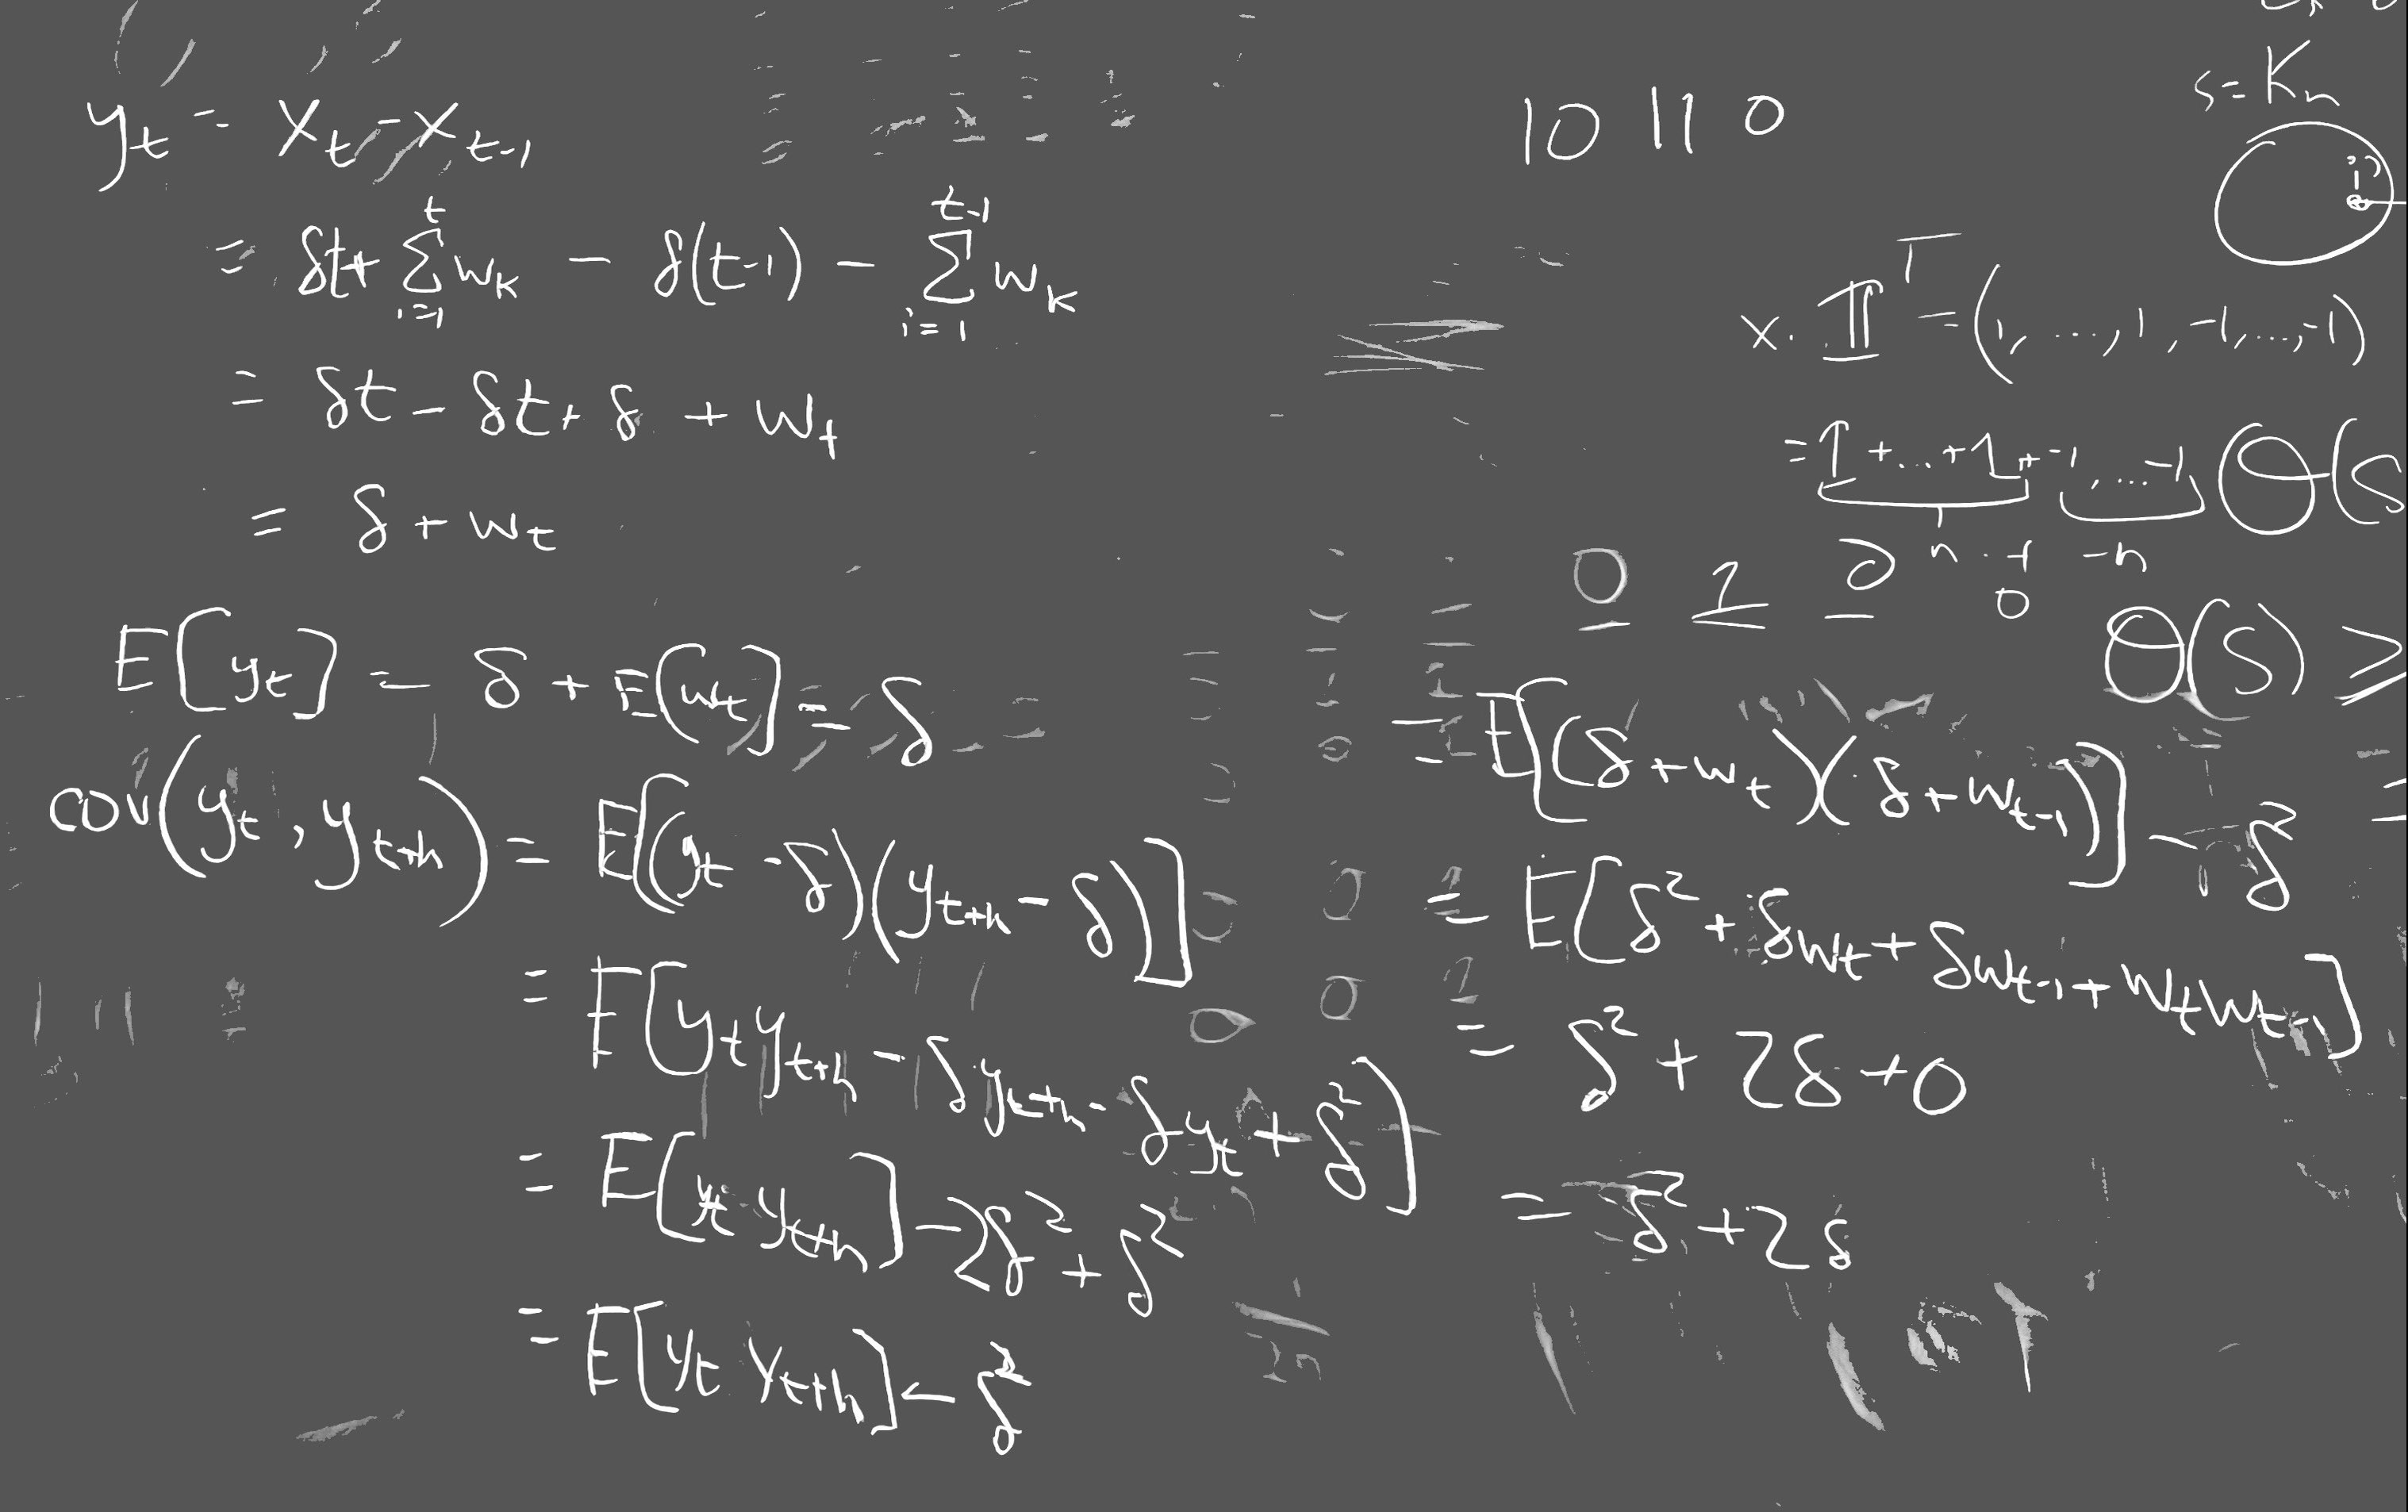 y_t = x_t - x_{t-1}
= δt + \sum_{i=1}^{t} w_k - δ(t-1) - \sum_{i=1}^{t-1} w_k
= δt - δt + δ + w_t
= δ + w_t
E[y_t] = δ + E[w_t] = δ
cov(y_t, y_{t+h}) = E[(y_t - δ)(y_{t+h} - δ)]
= E[y_t y_{t+h} - δy_{t+h} - δy_t + δ^2]
= E[y_t y_{t+h}] - 2δ^2 + δ^2
= E[y_t y_{t+h}] - δ^2
10 11 0
s = K_n
x. 𝟙^T = (1, ..., 1, -1, ..., -1)
= 1 + ... + 1 + -1, ... -1 Θ(S
n + -n
0
0 1 2
Θ(S) ≥
= E[(δ + w_t)(δ + w_{t-1})] - δ^2
= E[δ^2 + δw_t + δw_{t-1} + w_t w_{t-1}]
= δ^2 + 2δ + 0
= δ^2 + 2δ